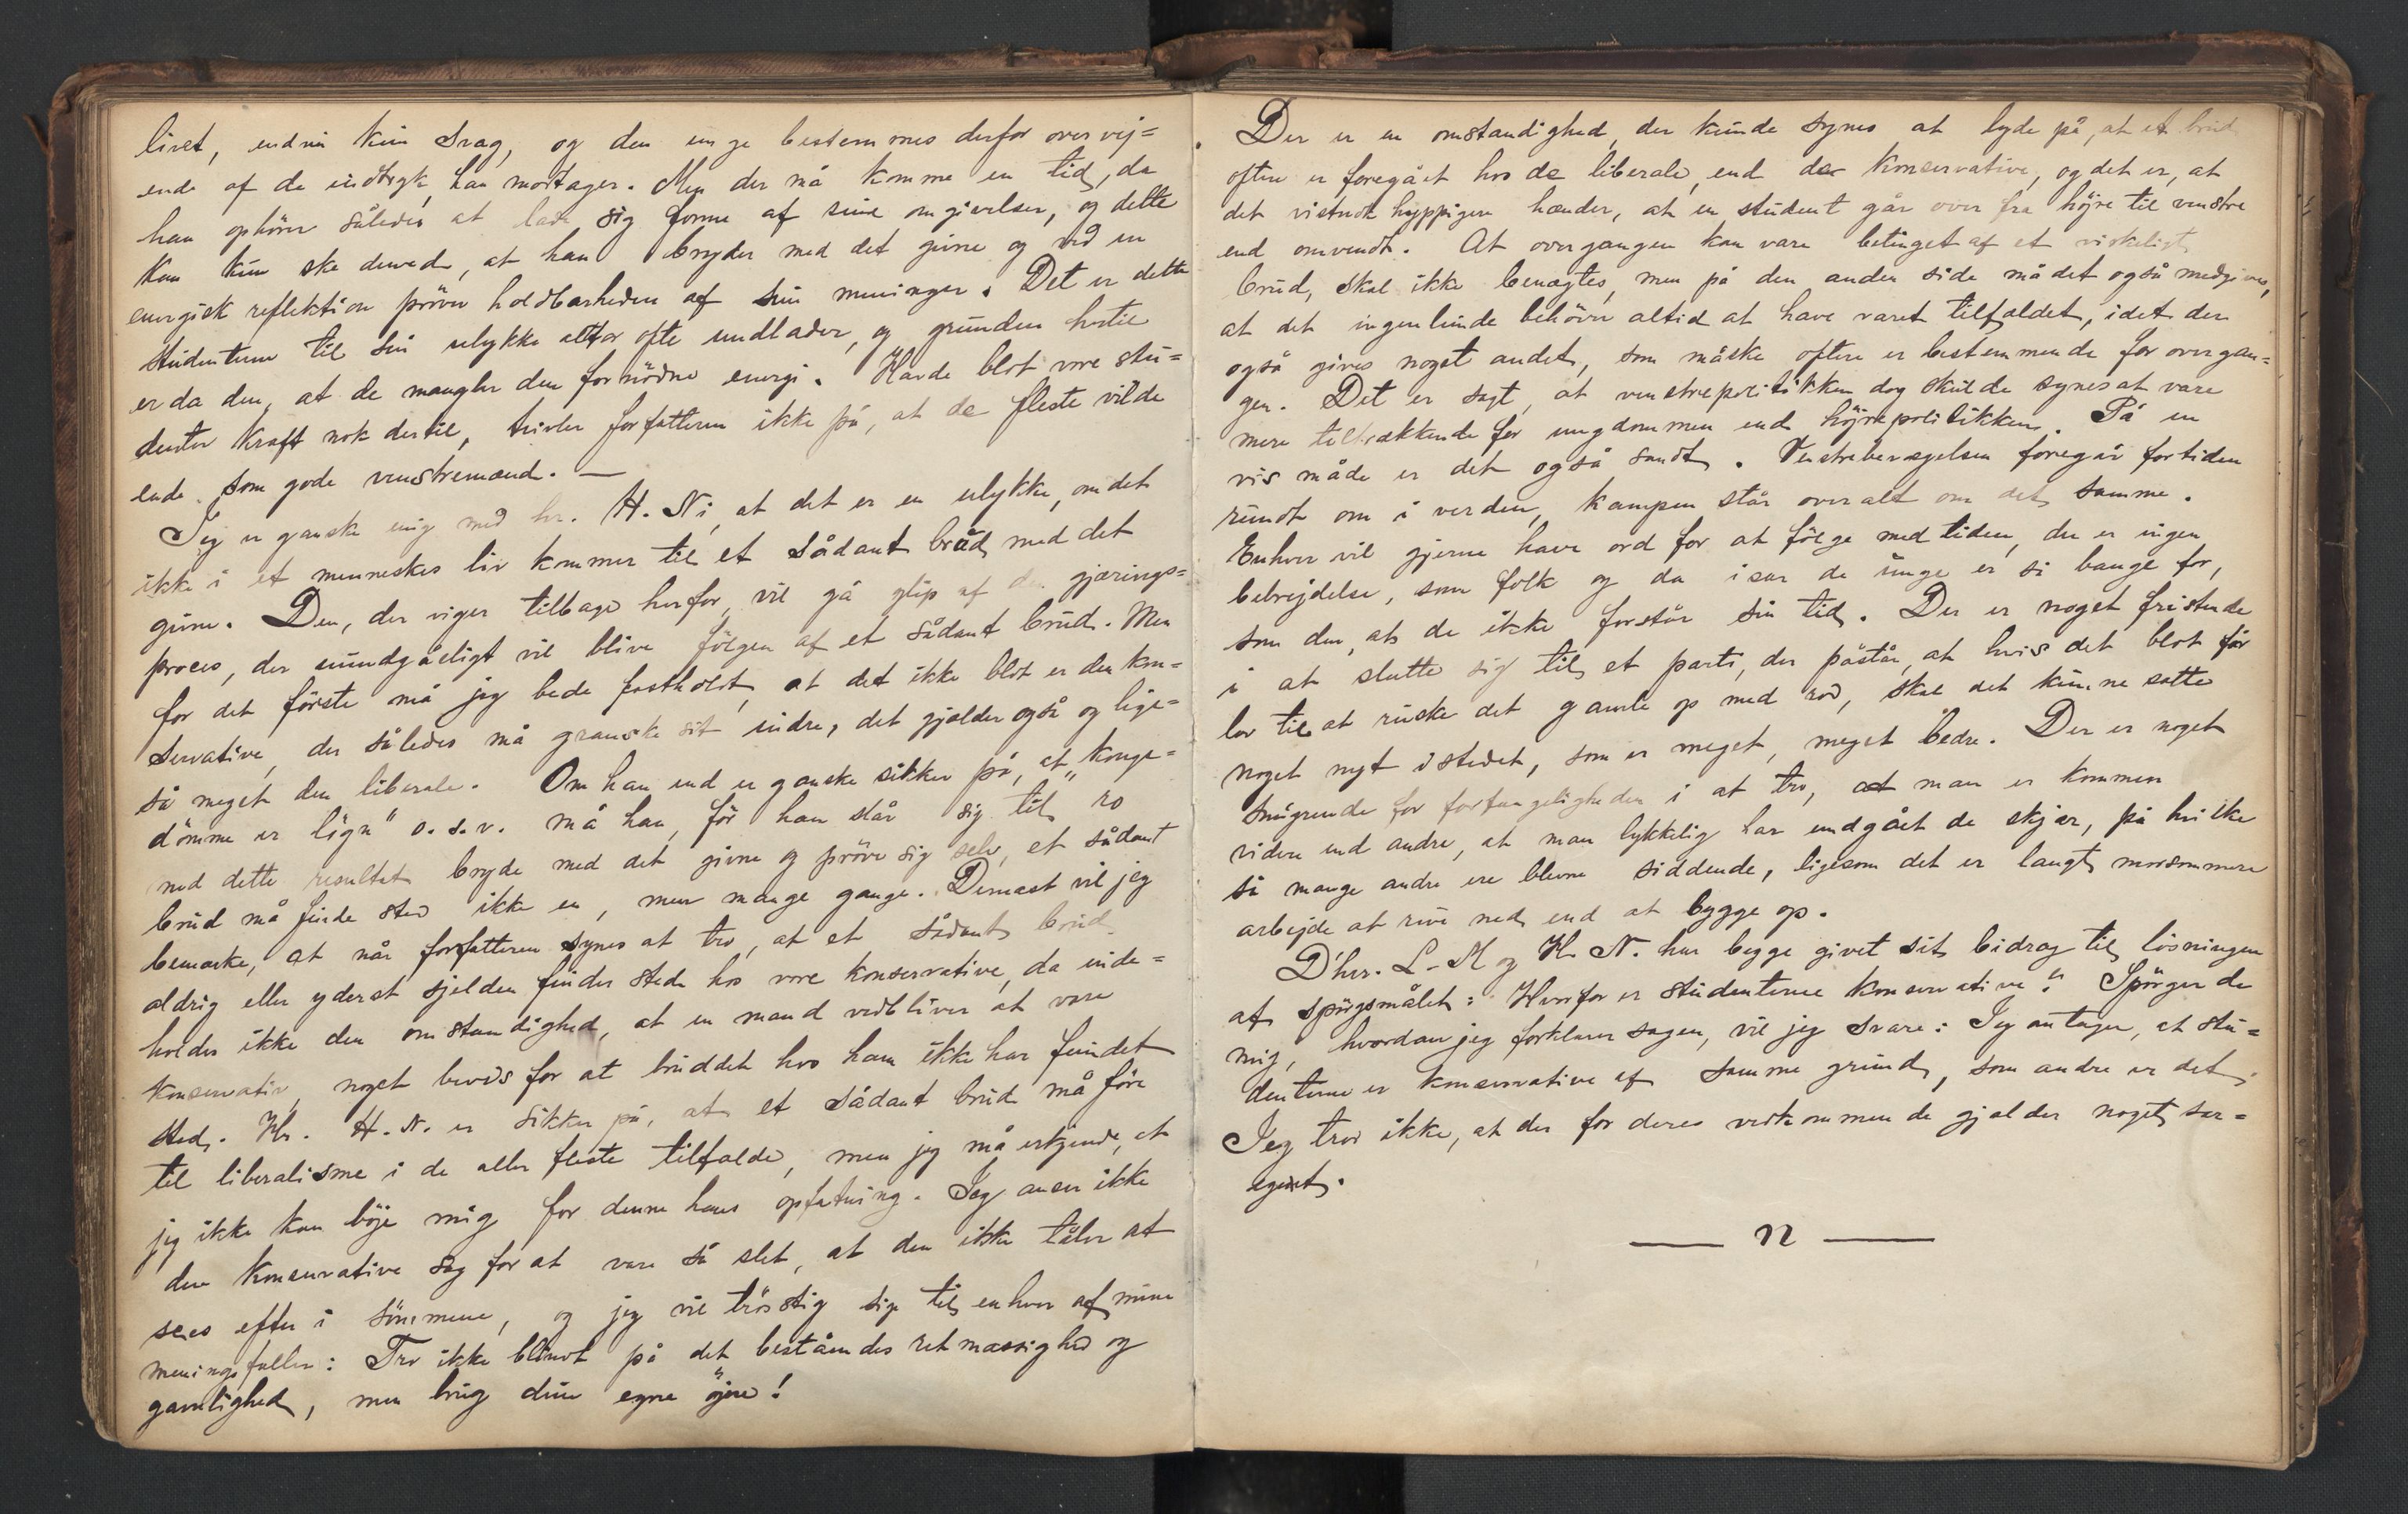 livet, endnu kun svag, og den unge bestemmes derfor overvej=
ende af de indtryk, han modtager. Men der må komme en tid, da
han ophörer således at lade sig forme af sine omgivelser, og dette
kan kun ske derved, at han bryder med det givne og ved en
energisk reflektion pröver holdbarheden af sin meninger. Det er dette
studenterne til sin ulykke altfor ofte undlader, og grunden hertil
er da den, at de mangler den fornödne energi. Havde blot vore stu=
denter kraft nok dertil, tvivler forfatteren ikke på, at de fleste vilde
ende som gode venstremænd. —
Jeg er ganske enig med hr. H. N. i, at det er en ulykke, om det
ikke i et menneskes liv kommer til et sådant brud med det
givne. Den, der viger tilbage herfor, vil gå glip af den gjærings=
proces, der uundgåeligt vil blive fölgen af et sådant brud. Men
for det förste må jeg bede fastholdt, at det ikke blot er den kon=
servative, der således må granske sit indre, det gjælder også og lige=
så meget den liberale. Om han end er ganske sikker på, at "konge=
dömme er lögn" o.s.v. må han, för han slår sig til ro
med dette resultat bryde med det givne og pröve sig selv, et sådant
brud må finde sted ikke en, men mange gange. Dernæst vil jeg
bemærke, at når forfatteren synes at tro, at et sådant brud
aldrig eller yderst sjelden finder sted hos vore konservative, da inde=
holder ikke den omstændighed, at en mand vedbliver at være
konservativ, noget bevis for at bruddet hos ham ikke har fundet
sted. Hr. H. N. er sikker på, at et sådant brud må före
til liberalisme i de aller fleste tilfælde, men jeg må erkjende, at
jeg ikke kan böje mig for denne hans opfatning. Jeg anser ikke
den konservative sag for at være så slet, at den ikke tåler at
sees efter i sömmene, og jeg vil tröstig sige til enhver af mine
meningsfæller: Tro ikke blindt på det beståendes retmæssighed og
gavnlighed, men brug dine egne öjne!
Der er en omstændighed, der kunde synes at tyde på, at et brud
oftere er foregået hos de liberale, end de konservative, og det er, at
det vistnok hyppigere hænder, at en student går over fra höjre til venstre
end omvendt. At overgangen kan være betinget af et virkeligt
brud, skal ikke benægtes, men på den anden side må det også medgives,
at det ingenlunde behöver altid at have været tilfældet, idet der
også gives noget andet, som måske oftere er bestemmende for overgan=
gen. Det er sagt, at venstrepolitikken dog skulde synes at være
mere tiltrækkende for ungdommen end höjrepolitikken. På en
vis måde er det også sandt. Venstrebevægelsen foregår for tiden
rundt om i verden, kampen står overalt om det samme.
Enhver vil gjerne have ord for at fölge med tiden, der er ingen
bebrejdelse, som folk og da især de unge er så bange for,
som den, at de ikke forstår sin tid. Der er noget fristende
i at slutte sig til et parti, der påstår, at hvis det blot får
lov til at ruske det gamle op med rod, skal det kunne sætte
noget nyt istedet, som er meget, meget bedre. Der er noget
smigrende for forfængeligheden i at tro, at man er kommen
videre end andre, at man lykkelig har undgået de skjær, på hvilke
så mange andre ere blevne siddende, ligesom det er langt morsommere
arbejde at rive ned end at bygge op.
D'hrr. L-M og H. N. har begge givet sit bidrag til lösningen
af spörgsmålet: "Hvorfor er studenterne konservative?" Spörger de
mig, hvordan jeg forklarer sagen, vil jeg svare: Jeg antager, at stu=
denterne er konservative af samme grund, som andre er det.
Jeg tror ikke, at der for deres vedkommende gjælder noget sær=
egent.
— n —